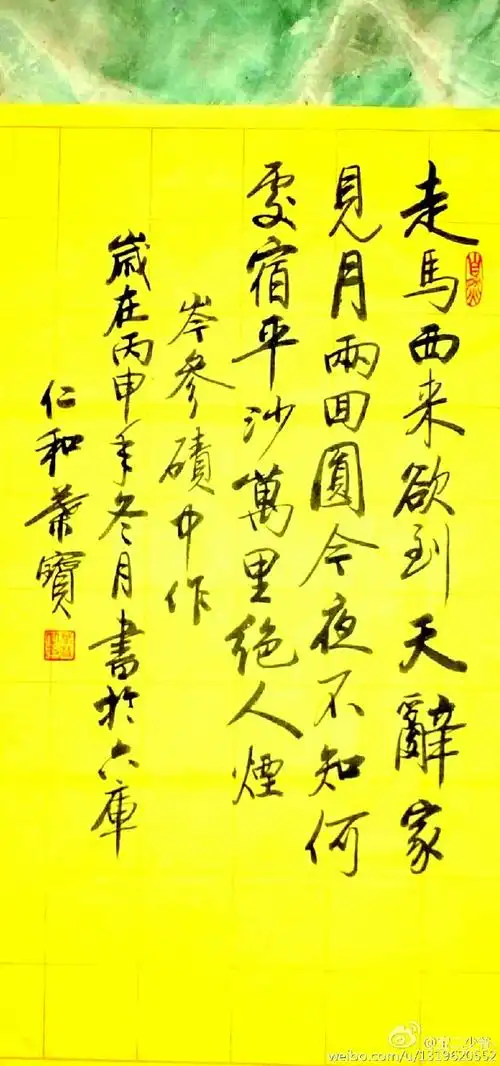 走馬西来欲到天辭家
見月兩回圓今夜不知何
處宿平沙萬里絶人煙
岑參磧中作
歲在丙申年冬月書於六庫
仁和葉寶
weibo.com/u/1319620552